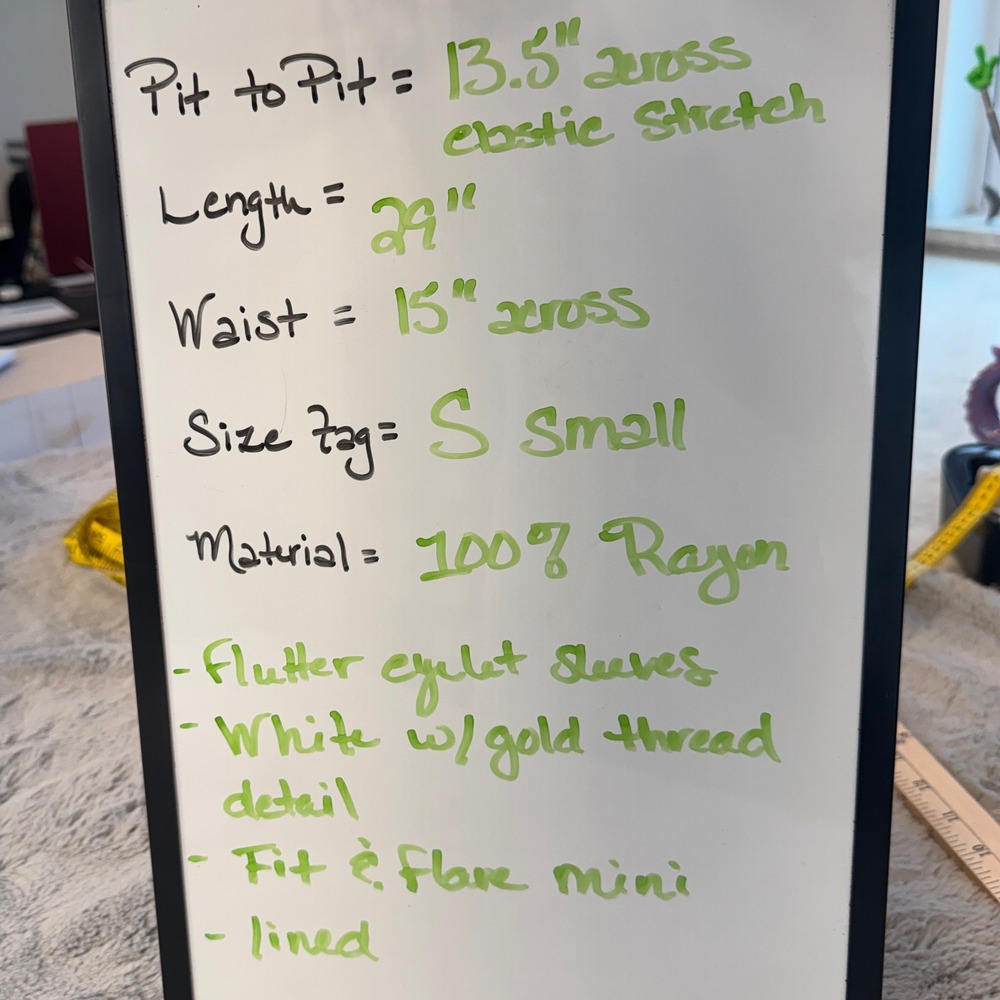 Pit to Pit = 13.5" across
elastic Stretch
Length = 29"
Waist = 15" across
Size Tag = S Small
Material = 100% Rayon
- Flutter eyelet Sleeves
- White w/ gold thread
detail
- Fit & flare mini
- lined